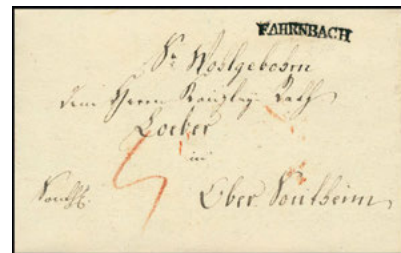 FAHRNBACH
Sr Wohlgebohrn
dem Herrn Kanzley Rath
Loeber
in
Ober Sontheim